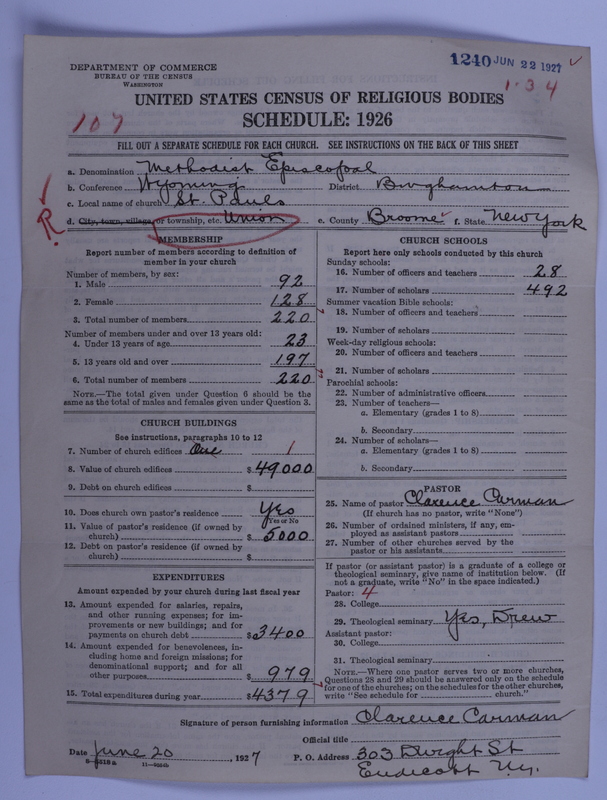 1240 JUN 22 1927
1-34
107
R
DEPARTMENT OF COMMERCE
BUREAU OF THE CENSUS
WASHINGTON
UNITED STATES CENSUS OF RELIGIOUS BODIES
SCHEDULE: 1926
FILL OUT A SEPARATE SCHEDULE FOR EACH CHURCH. SEE INSTRUCTIONS ON THE BACK OF THIS SHEET
a. Denomination Methodist Episcopal
b. Conference Wyoming District Binghamton
c. Local name of church St. Pauls
d. City, town, village, or township, etc. Union e. County Broome f. State New York
MEMBERSHIP
Report number of members according to definition of
member in your church
Number of members, by sex:
1. Male 92
2. Female 128
3. Total number of members 220
Number of members under and over 13 years old:
4. Under 13 years of age 23
5. 13 years old and over 197
6. Total number of members 220
NOTE.—The total given under Question 6 should be the
same as the total of males and females given under Question 3.
CHURCH BUILDINGS
See instructions, paragraphs 10 to 12
7. Number of church edifices One 1
8. Value of church edifices $ 49000
9. Debt on church edifices $
10. Does church own pastor's residence Yes
Yes or No
11. Value of pastor's residence (if owned by
church) $ 5000
12. Debt on pastor's residence (if owned by
church) $
EXPENDITURES
Amount expended by your church during last fiscal year
13. Amount expended for salaries, repairs,
and other running expenses; for im-
provements or new buildings; and for
payments on church debt $ 3400
14. Amount expended for benevolences, in-
cluding home and foreign missions; for
denominational support; and for all
other purposes $ 979
15. Total expenditures during year $ 4379
CHURCH SCHOOLS
Report here only schools conducted by this church
Sunday schools:
16. Number of officers and teachers 28
17. Number of scholars 492
Summer vacation Bible schools:
18. Number of officers and teachers
19. Number of scholars
Week-day religious schools:
20. Number of officers and teachers
21. Number of scholars
Parochial schools:
22. Number of administrative officers
23. Number of teachers—
a. Elementary (grades 1 to 8)
b. Secondary
24. Number of scholars—
a. Elementary (grades 1 to 8)
b. Secondary
PASTOR
25. Name of pastor Clarence Carman
(If church has no pastor, write "None")
26. Number of ordained ministers, if any, em-
ployed as assistant pastors
27. Number of other churches served by the
pastor or his assistants
If pastor (or assistant pastor) is a graduate of a college or
theological seminary, give name of institution below. (If
not a graduate, write "No" in the space indicated.)
Pastor: 4
28. College
29. Theological seminary Yes, Drew
Assistant pastor:
30. College
31. Theological seminary
NOTE.—Where one pastor serves two or more churches,
Questions 28 and 29 should be answered only on the schedule
for one of the churches; on the schedules for the other churches,
write "See schedule for church."
Signature of person furnishing information Clarence Carman
Official title
Date June 20, 1927 P. O. Address 303 Dwight St
Endicott N.Y.